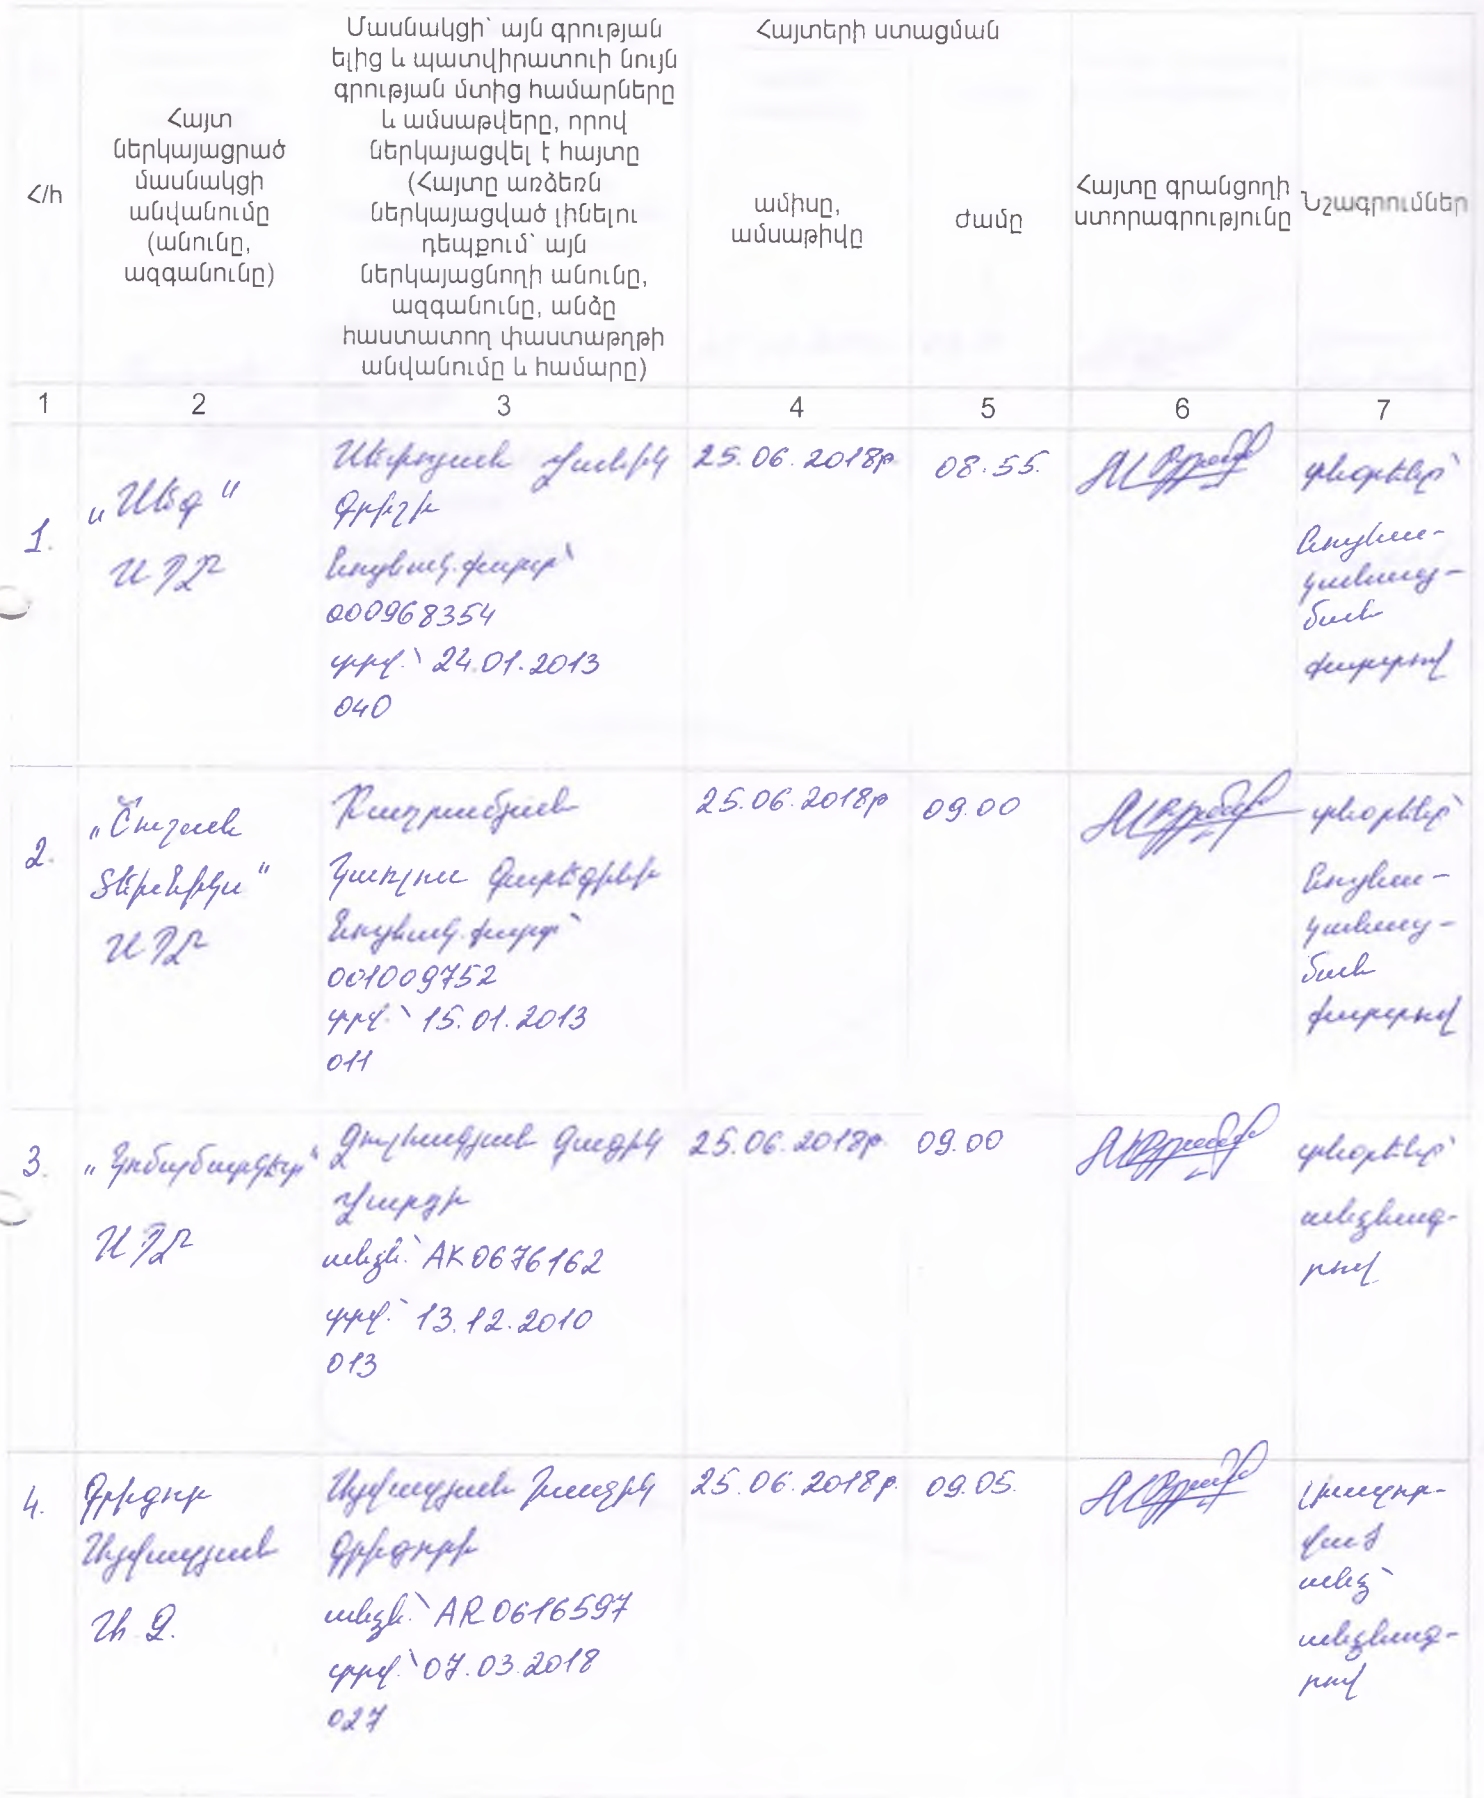 Հ/հ
Հայտ
ներկայացրած
մասնակցի
անվանումը
(անունը,
ազգանունը)
Մասնակցի՝ այն գրության
ելից և պատվիրատուի նույն
գրության մտից համարները
և ամսաթվերը, որով
ներկայացվել է հայտը
(Հայտը առձեռն
ներկայացված լինելու
դեպքում՝ այն
ներկայացնողի անունը,
ազգանունը, անձը
հաստատող փաստաթղթի
անվանումը և համարը)
Հայտերի ստացման
ամիսը,
ամսաթիվը
ժամը
Հայտը գրանցողի
ստորագրությունը
Նշագրումներ
1 2 3 4 5 6 7
1.
ՍՊԸ
Գրիշի
նույնակ. քարտ՝
000968354
տրվ.՝ 24.01.2013
040
25.06.2018թ
08.55.
տնօրենը՝
նույնա-
կանաց-
ման
քարտով
2.
„Շուշան
ՍՊԸ
Կառլոս Գարեգինի
նույնակ. քարտ՝
001009752
տրվ.՝ 15.01.2013
011
25.06.2018թ
09.00
տնօրենը՝
նույնա-
կանաց-
ման
քարտով
3.
ՍՊԸ
Գագիկ
անձն.՝ AK0676162
տրվ.՝ 13.12.2010
013
25.06.2018թ.
09.00
տնօրենը՝
անձնագ-
րով
4.
Գրիգոր
Այվազյան
ԱՁ.
Այվազյան Խաչիկ
Գրիգորի
անձն.՝ AR0616597
տրվ.՝ 07.03.2018
027
25.06.2018թ.
09.05.
լիազոր-
ված
անձ՝
անձնագ-
րով